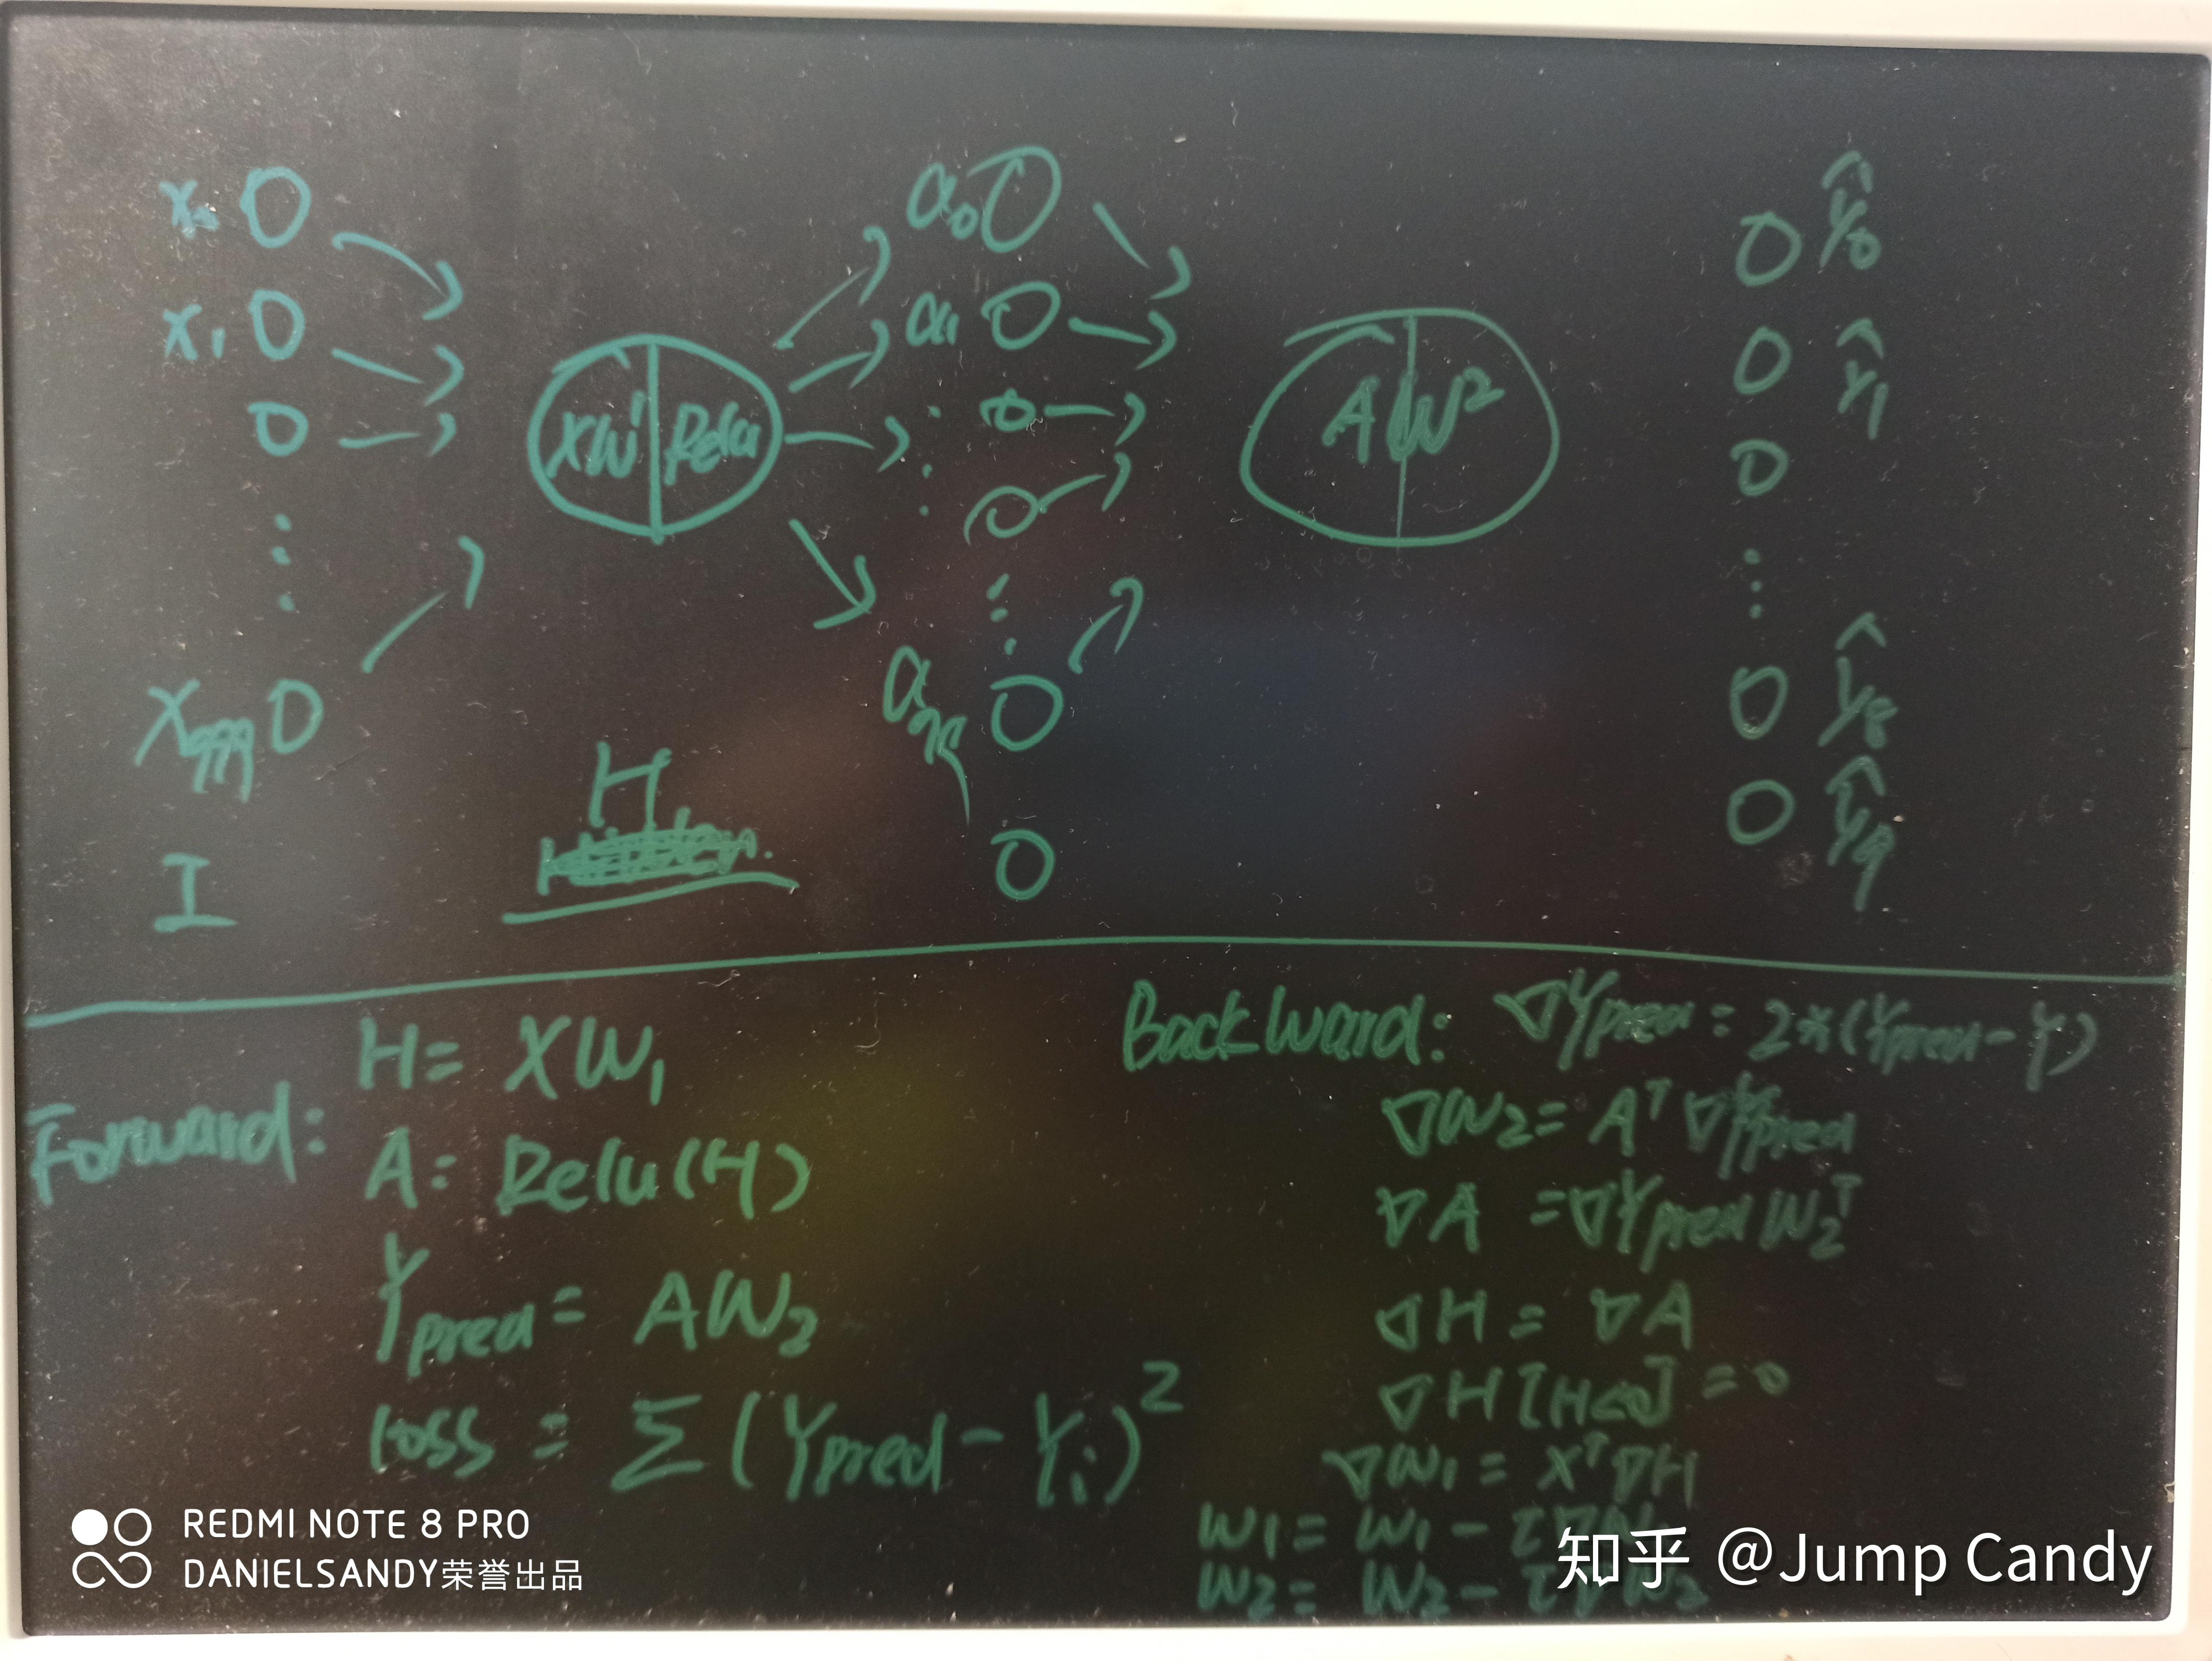 x₀
x₁
x₉₉₉
I
XW¹ Relu
H
a₀
a₁
a₉₉
AW²
ŷ₀
ŷ₁
ŷ₈
ŷ₉
Forward:
H= XW₁
A= Relu(H)
Ypred= AW₂
loss = Σ(Ypred-Yi)²
Backward: ∇Ypred = 2*(Ypred-Y)
∇W₂= Aᵀ∇Ypred
∇A =∇Ypred W₂ᵀ
∇H = ∇A
∇H[H<0] = 0
∇W₁ = Xᵀ∇H
W₁ = W₁ -
W₂ = W₂ - τ∇W₂
REDMI NOTE 8 PRO
DANIELSANDY荣誉出品
知乎 @Jump Candy